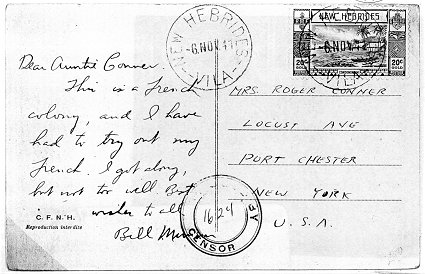 Dear Auntie Conner.
This is a French
colony, and I have
had to try out my
French. I got along,
but not too well Best
wishes to all
Bill
C. F. N. H.
Reproduction interdite
NEW HEBRIDES
-6 NOV 41
VILA
NEW HEBRIDES
6 NOV 41
20c GOLD
20c GOLD
MRS. ROGER CONNER
LOCUST AVE
PORT CHESTER
NEW YORK
U. S. A.
1624
BY
CENSOR